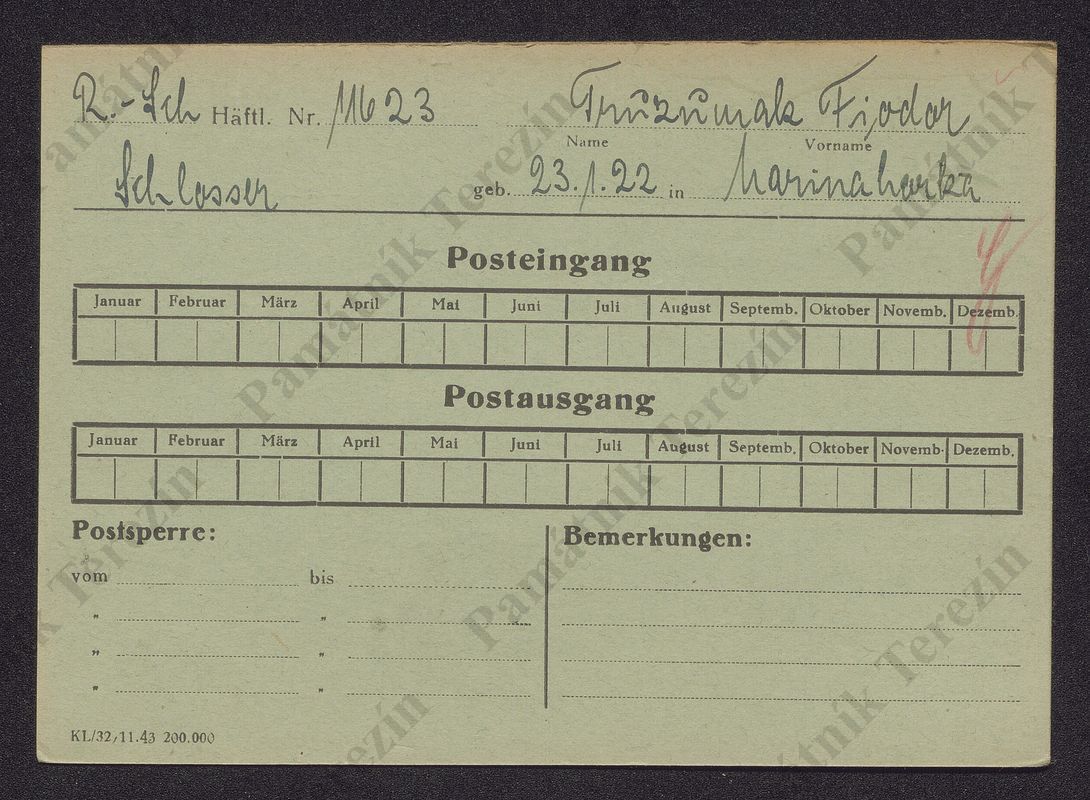 R.-Sch Häftl. Nr. 11623 Truzumak Fjodor
Name Vorname
Schlosser geb. 23.1.22 in Marinahorka
Posteingang
Januar Februar März April Mai Juni Juli August Septemb. Oktober Novemb. Dezemb.
Postausgang
Januar Februar März April Mai Juni Juli August Septemb. Oktober Novemb. Dezemb.
Postsperre: Bemerkungen:
vom bis
" "
" "
" "
KL/32/11.43 200.000
Památník Terezín